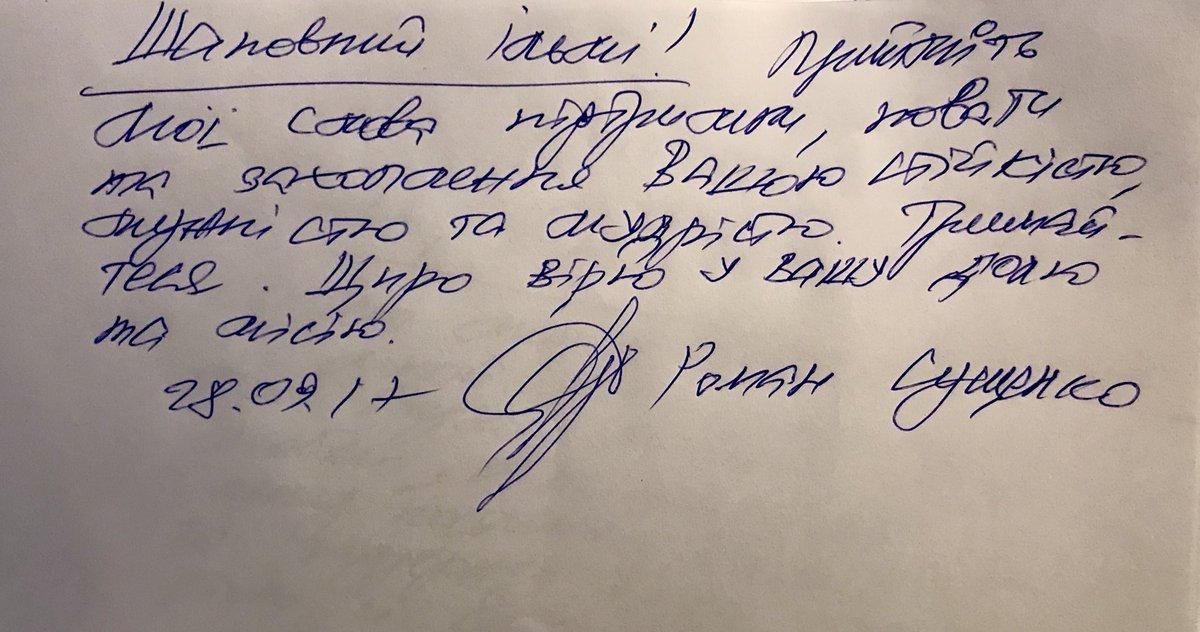 Шановний Ільмі! Прийміть
мої слова підтримки, поваги
та захоплення Вашою стійкістю,
мужністю та мудрістю. Тримай-
теся. Щиро вірю у вашу долю
та місію.
28.09.17 Роман Сущенко